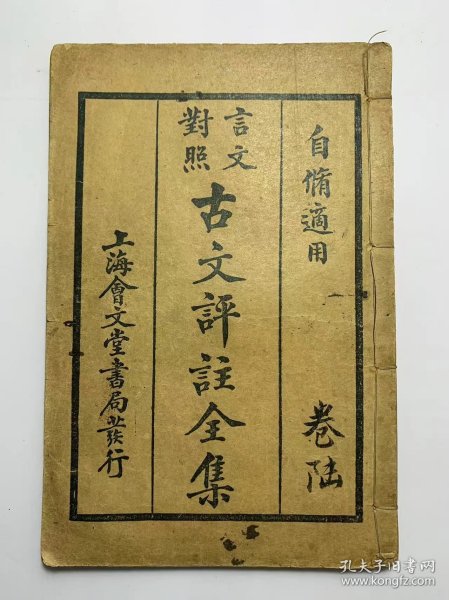 自脩適用
卷陆
言文
對照
古文評註全集
上海會文堂書局發行
孔夫子旧书网
www.kongfz.com